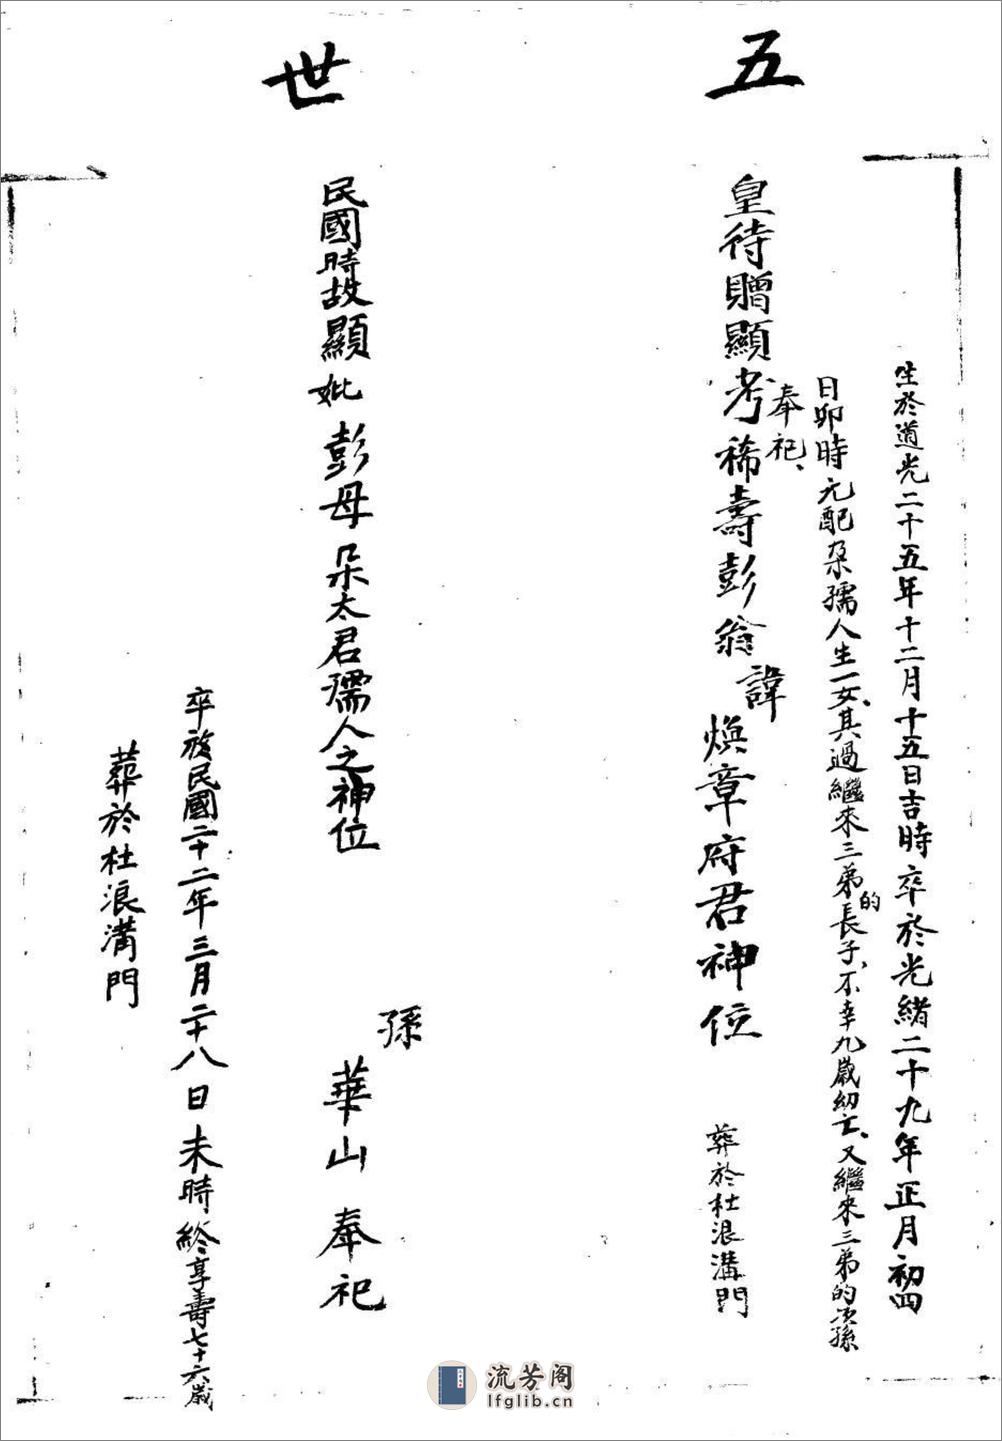 五世
生於道光二十五年十二月十五日吉時卒於光緒二十九年正月初四
日卯時元配朶孺人生一女、其過繼來三弟的長子、不幸九歲幼亡、又繼來三弟的次孫
奉祀、
皇待贈顯考稀壽彭翁諱煥章府君神位
葬於杜浪溝門
孫
華山奉祀
民國時故顯妣彭母朶太君孺人之神位
卒於民國二十二年三月二十八日未時終享壽七十六歲
葬於杜浪溝門
流芳阁
lfglib.cn